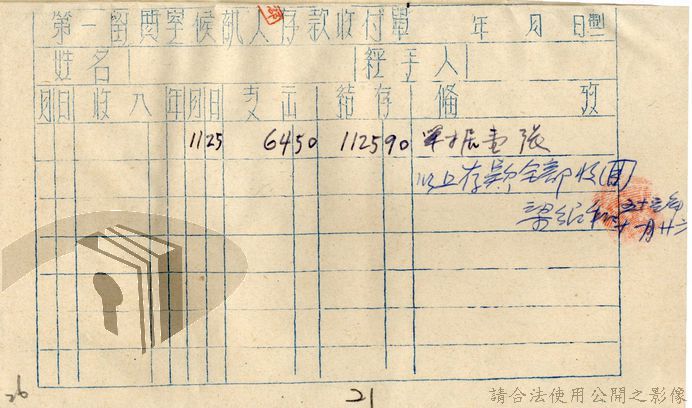 第一留西學候訊人存款收付單 年 月 日
姓名 經手人
月 日 收入 年 月 日 支出 結存 備 攷
11 25 6450 112590 單據壹張
以上存款全部收回
梁紹和 五十三年
十一月廿六
26
21
請合法使用公開之影像